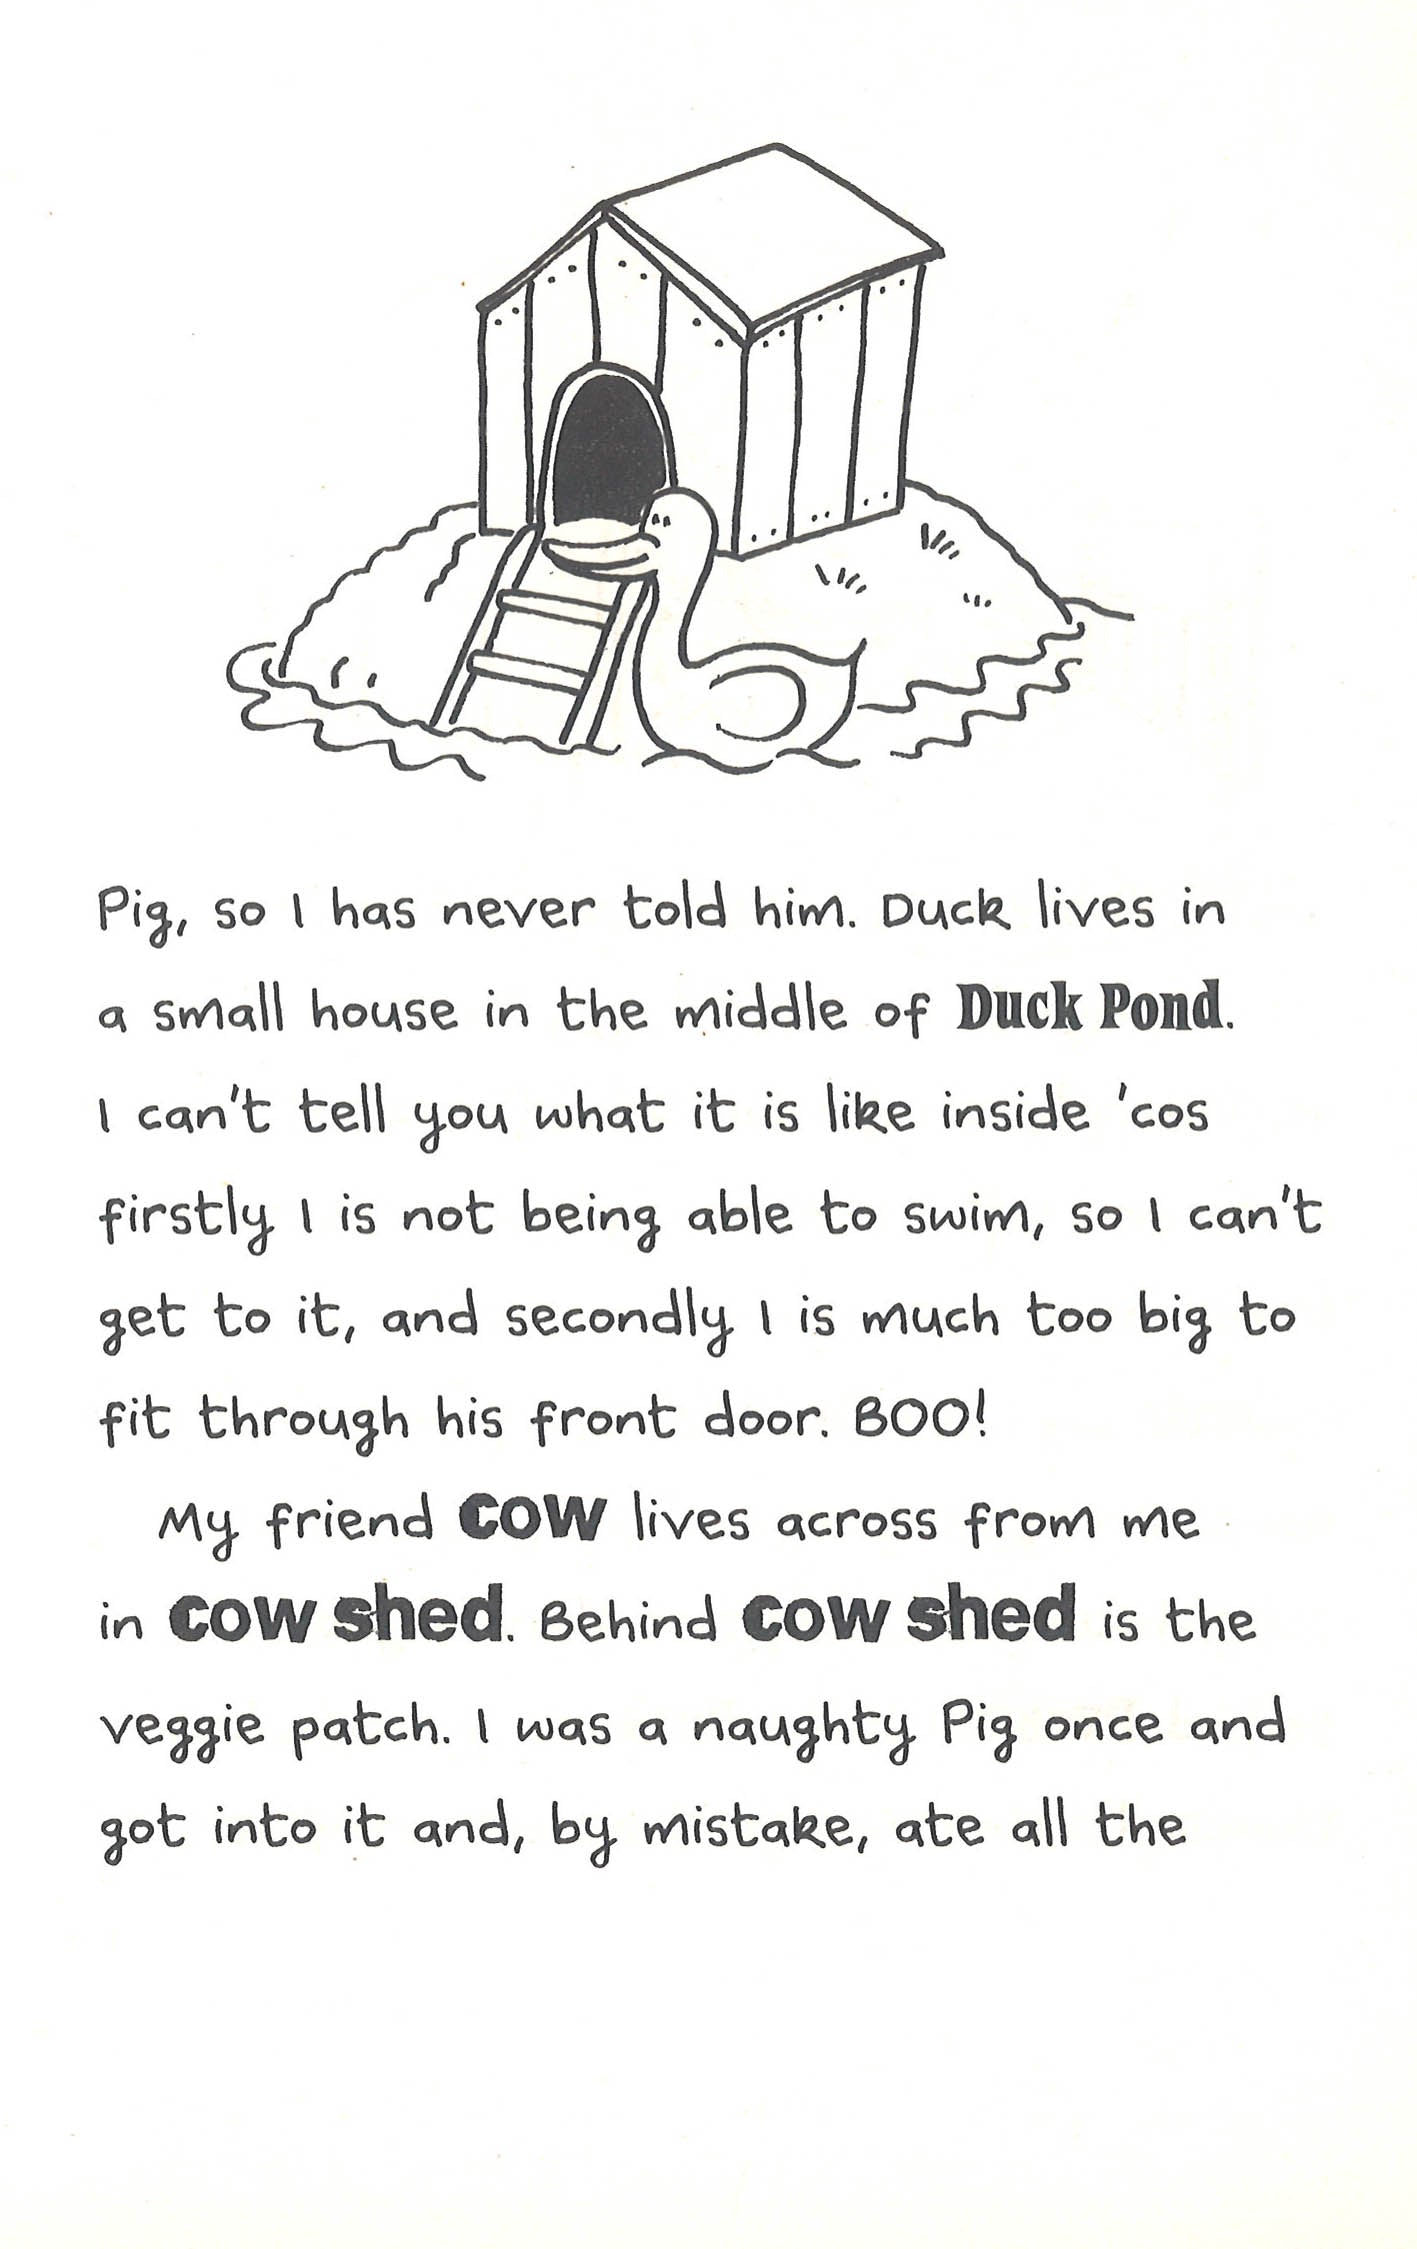 Pig, so I has never told him. Duck lives in
a small house in the middle of Duck Pond.
I can't tell you what it is like inside 'cos
firstly I is not being able to swim, so I can't
get to it, and secondly I is much too big to
fit through his front door. BOO!
My friend Cow lives across from me
in Cow Shed. Behind Cow Shed is the
veggie patch. I was a naughty Pig once and
got into it and, by mistake, ate all the